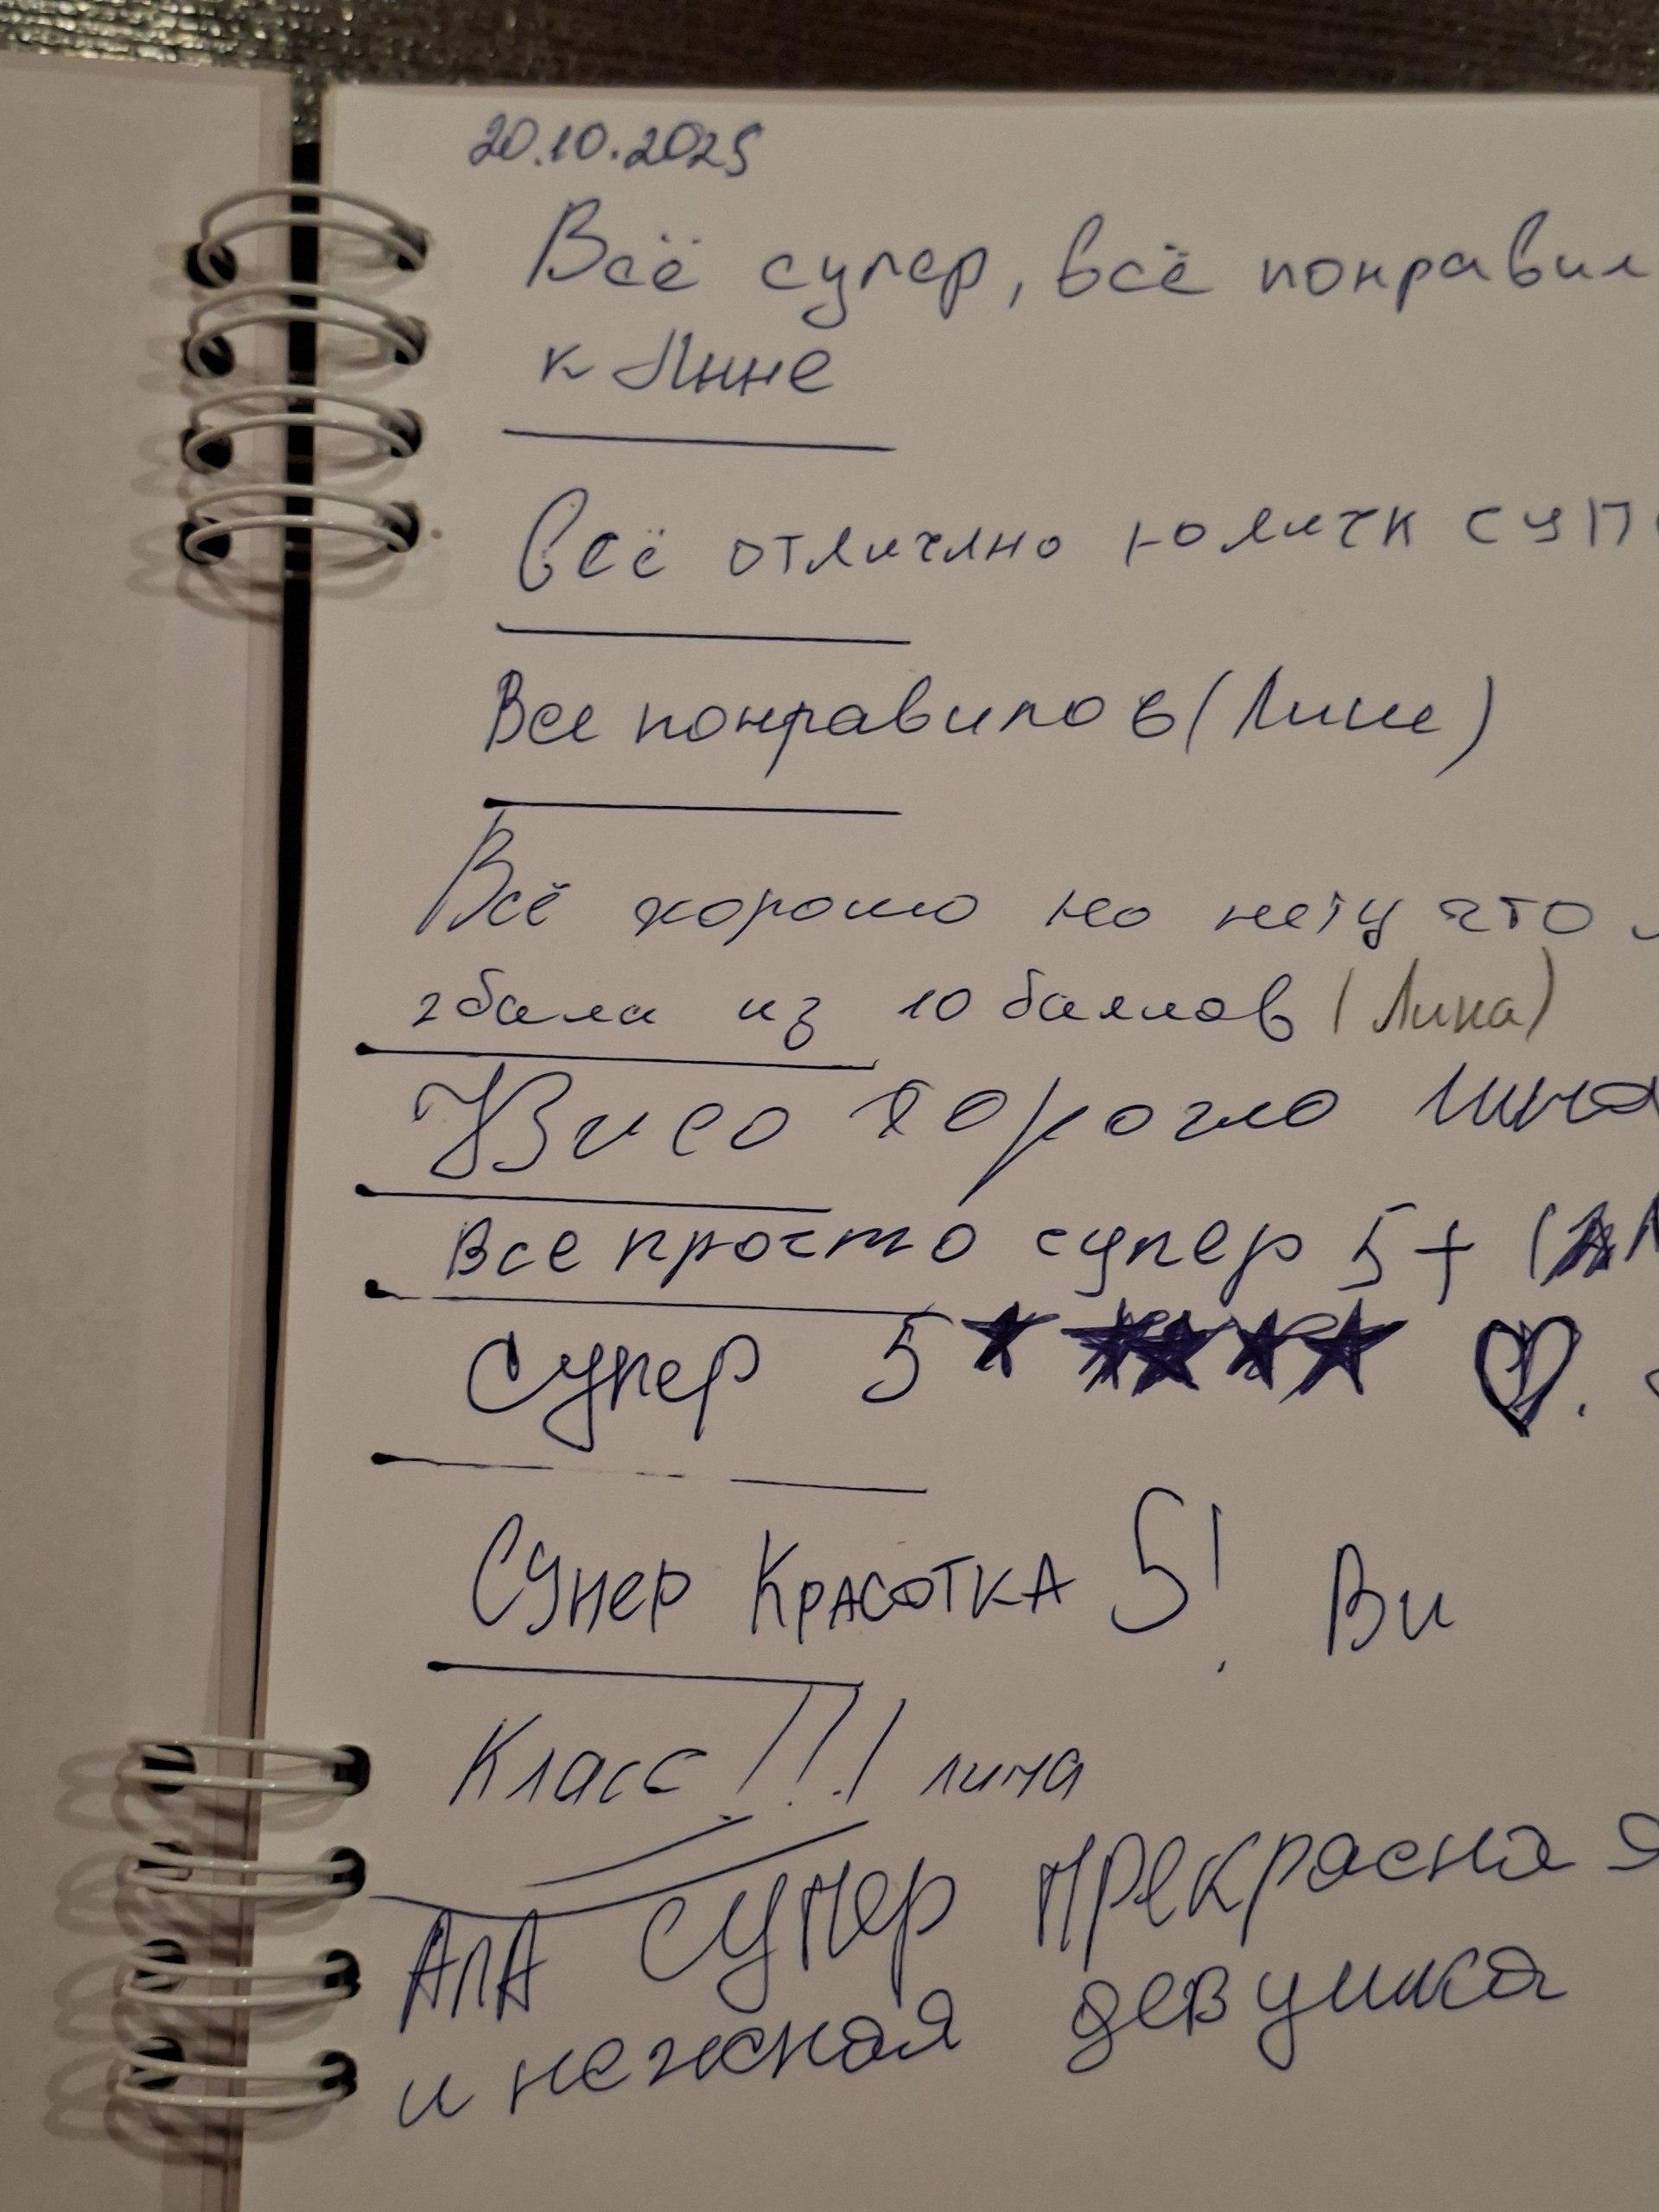 20.10.2025
Всё супер, всё понравил
к Лине
Всё отлично СУП
Все понравилов (Лине)
Всё хорошо но нету что
2 бала из 10 баллов (Лина)
хорошо лина
Все просто супер 5+ (
Супер 5 .
Супер Красотка 5! Ви
Класс!!! лина
супер прекрасная
и нежная девушка